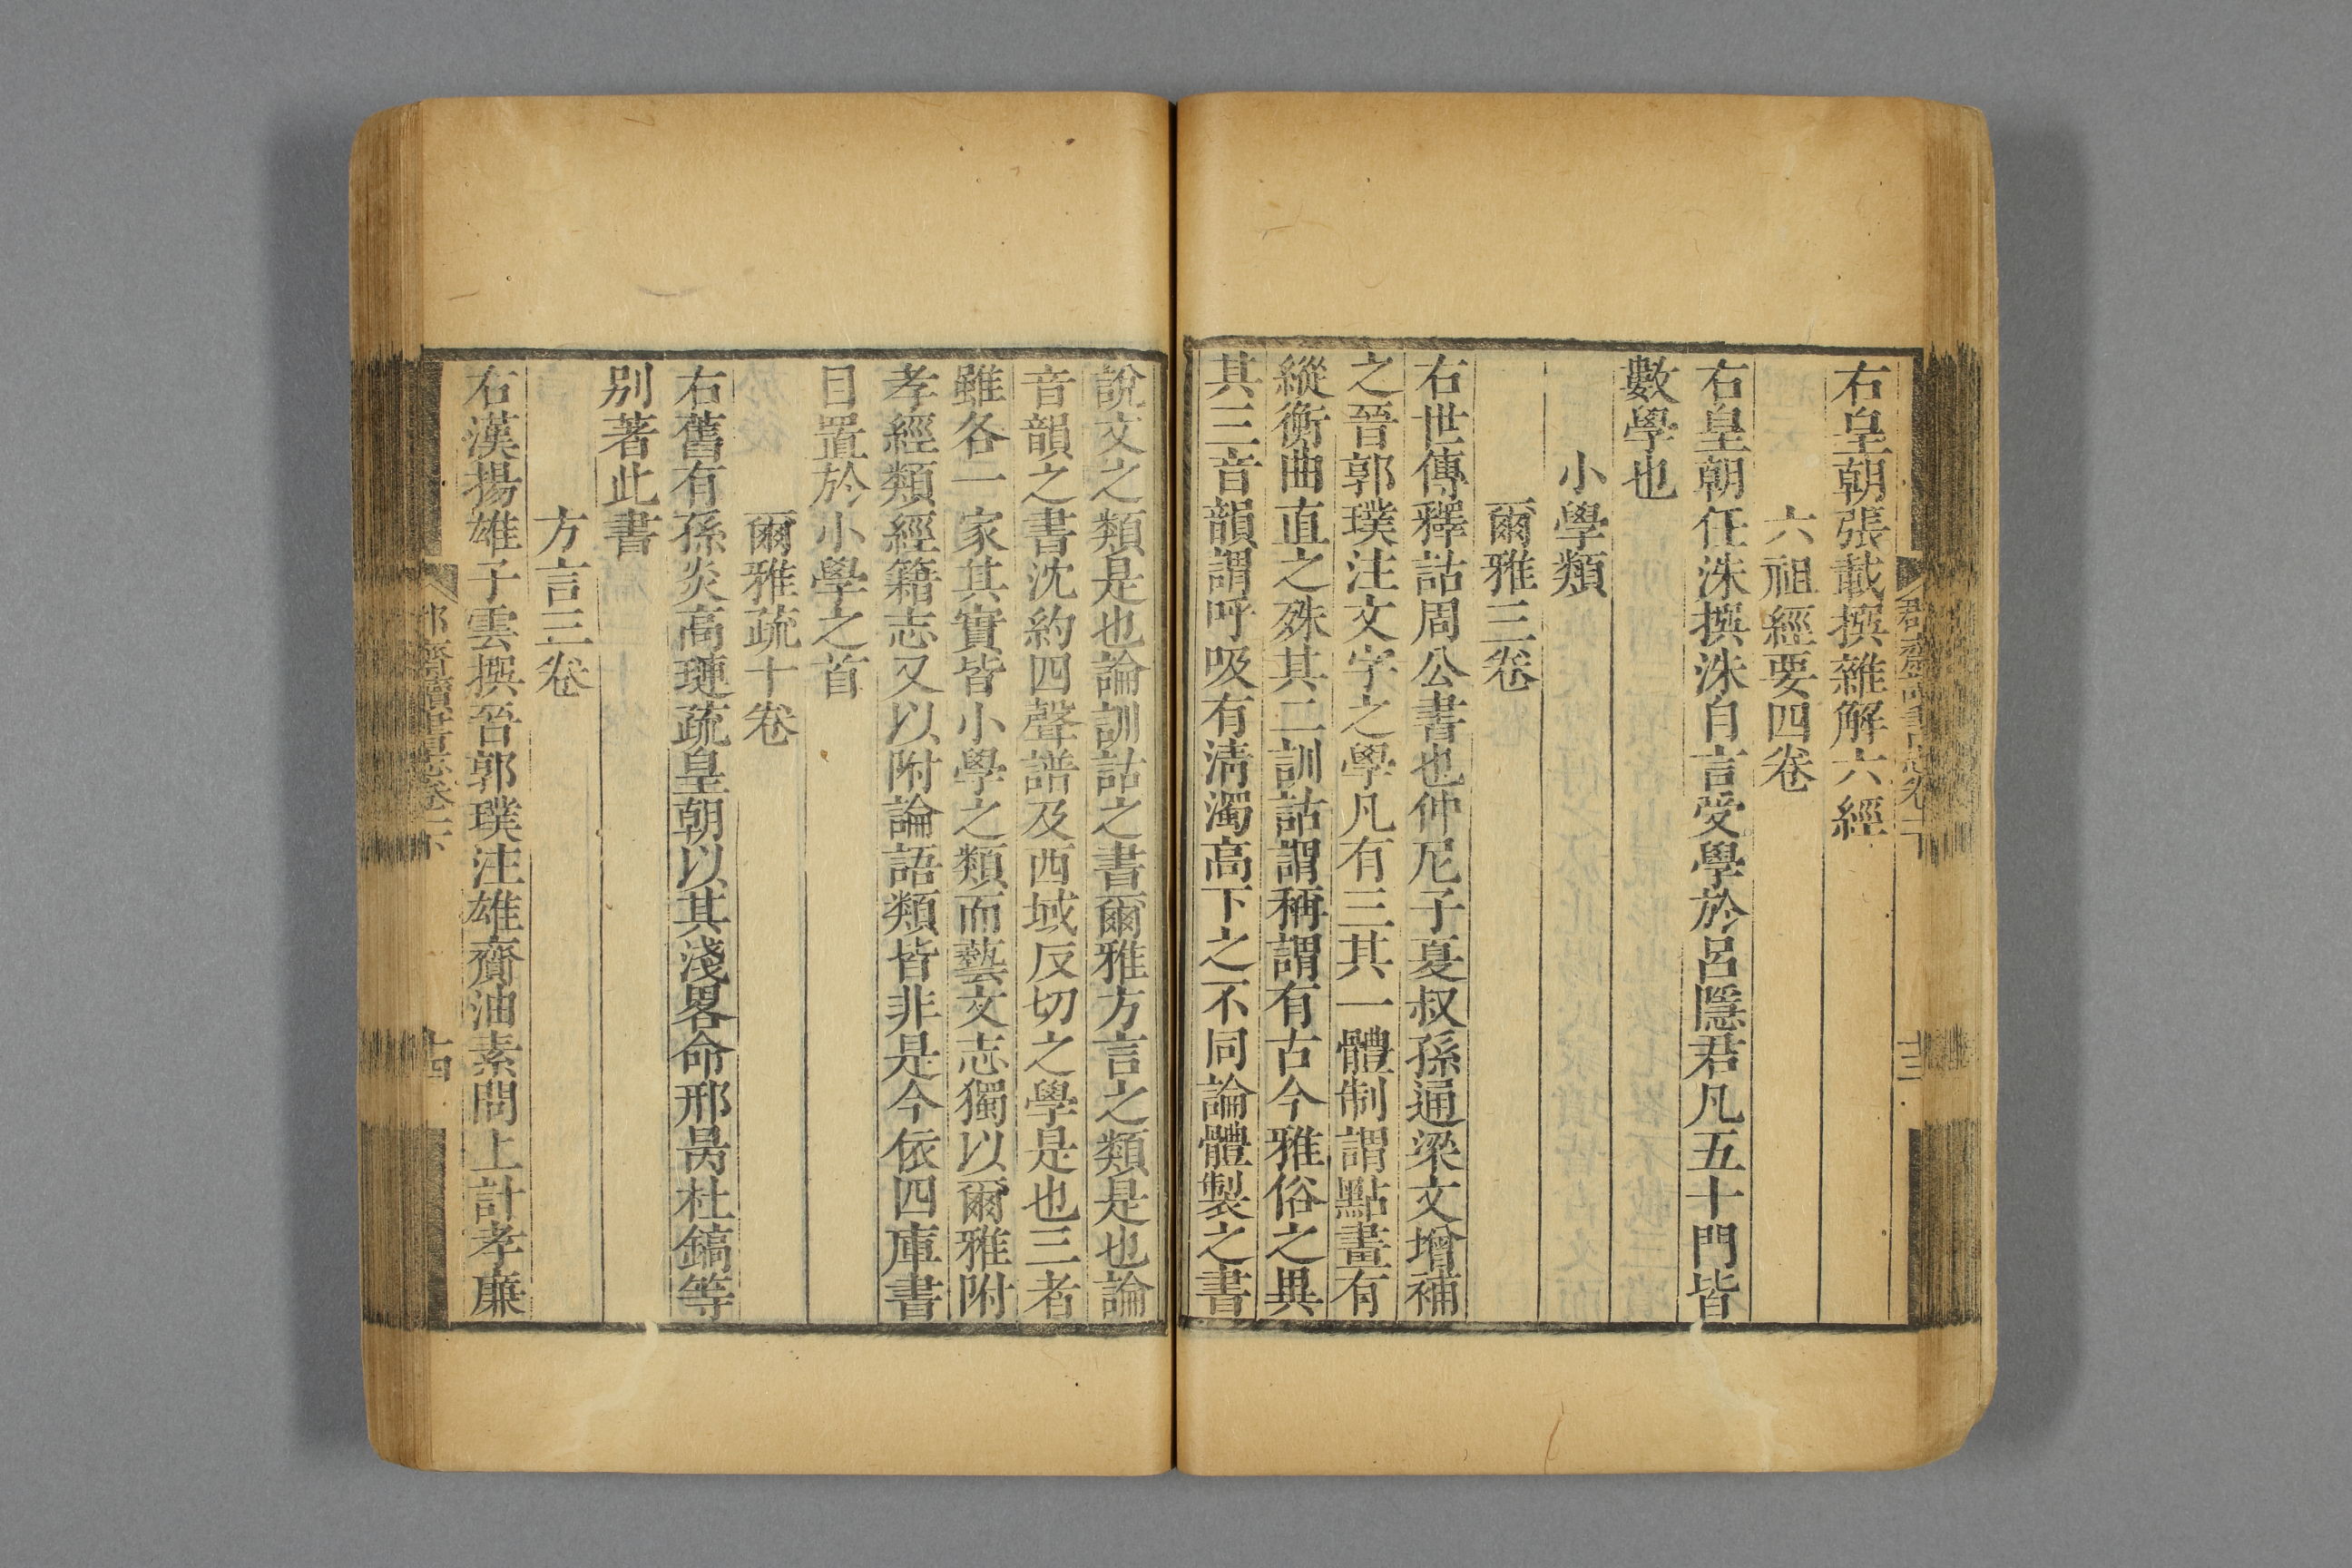 右皇朝張載撰雜解六經
六祖經要四卷
右皇朝任洙撰洙自言受學於呂隱君凡五十門皆
數學也
小學類
爾雅三卷
右世傳釋詁周公書也仲尼子夏叔孫通梁文增補
之晉郭璞注文字之學凡有三其一體制謂點畫有
縱衡曲直之殊其二訓詁謂稱謂有古今雅俗之異
其三音韻謂呼吸有清濁高下之不同論體製之書
說文之類是也論訓詁之書爾雅方言之類是也論
音韻之書沈約四聲譜及西域反切之學是也三者
雖各一家其實皆小學之類而藝文志獨以爾雅附
孝經類經籍志又以附論語類皆非是今依四庫書
目置於小學之首
爾雅疏十卷
右舊有孫炎高璉疏皇朝以其淺畧命邢昺杜鎬等
別著此書
方言三卷
右漢揚雄子雲撰晉郭璞注雄齎油素問上計孝廉
十四